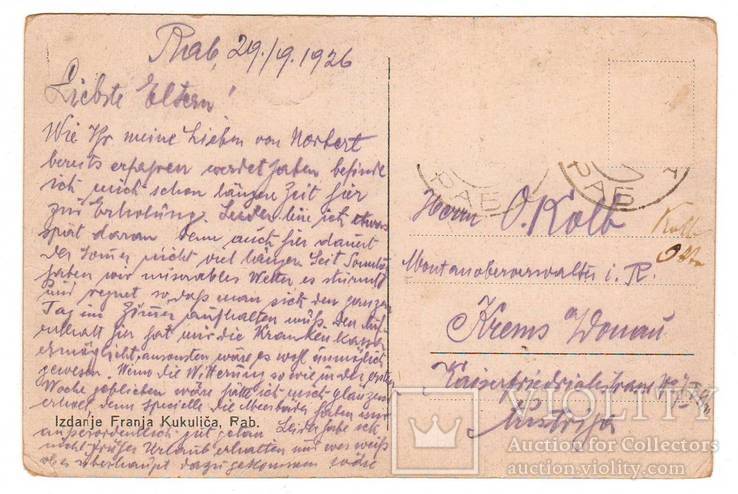 Rab, 29./9. 1926
Liebste Eltern!
Wie Ihr meine Lieben von Norbert
bereits erfahren werdet haben befinde
ich mich schon längere Zeit hier
zur Erholung. Leider bin ich etwas
spät daran denn auch hier dauert
der Somer nicht viel länger. Seit Sonntag
haben wir miserables Wetter es stürmt
und regnet so daß man sich den ganzen
Tag im Zimer aufhalten muß. Den Auf-
enthalt hier hat mir die Krankenkasse
ermöglicht, ansonsten wäre es wohl unmöglich
gewesen. Wenn die Witterung so wie in der ersten
Woche geblieben wäre hätte ich mich glänzend
erholt denn speziell die Meerbäder haben mir
Izdanje Franja Kukuliča, Rab.
außerordentlich gut getan. Leider habe ich
nicht früher Urlaub erhalten und wer weiß
ob es überhaupt dazu gekommen wäre
РАБ
РАБ
Herrn O. Kolb
Kolb
Otto
Montanoberverwalter i. R.
Krems a/Donau
Kaiserfriedrichstrasse
Austrija
VIOLITY
Auction for Collectors
auction.violity.com